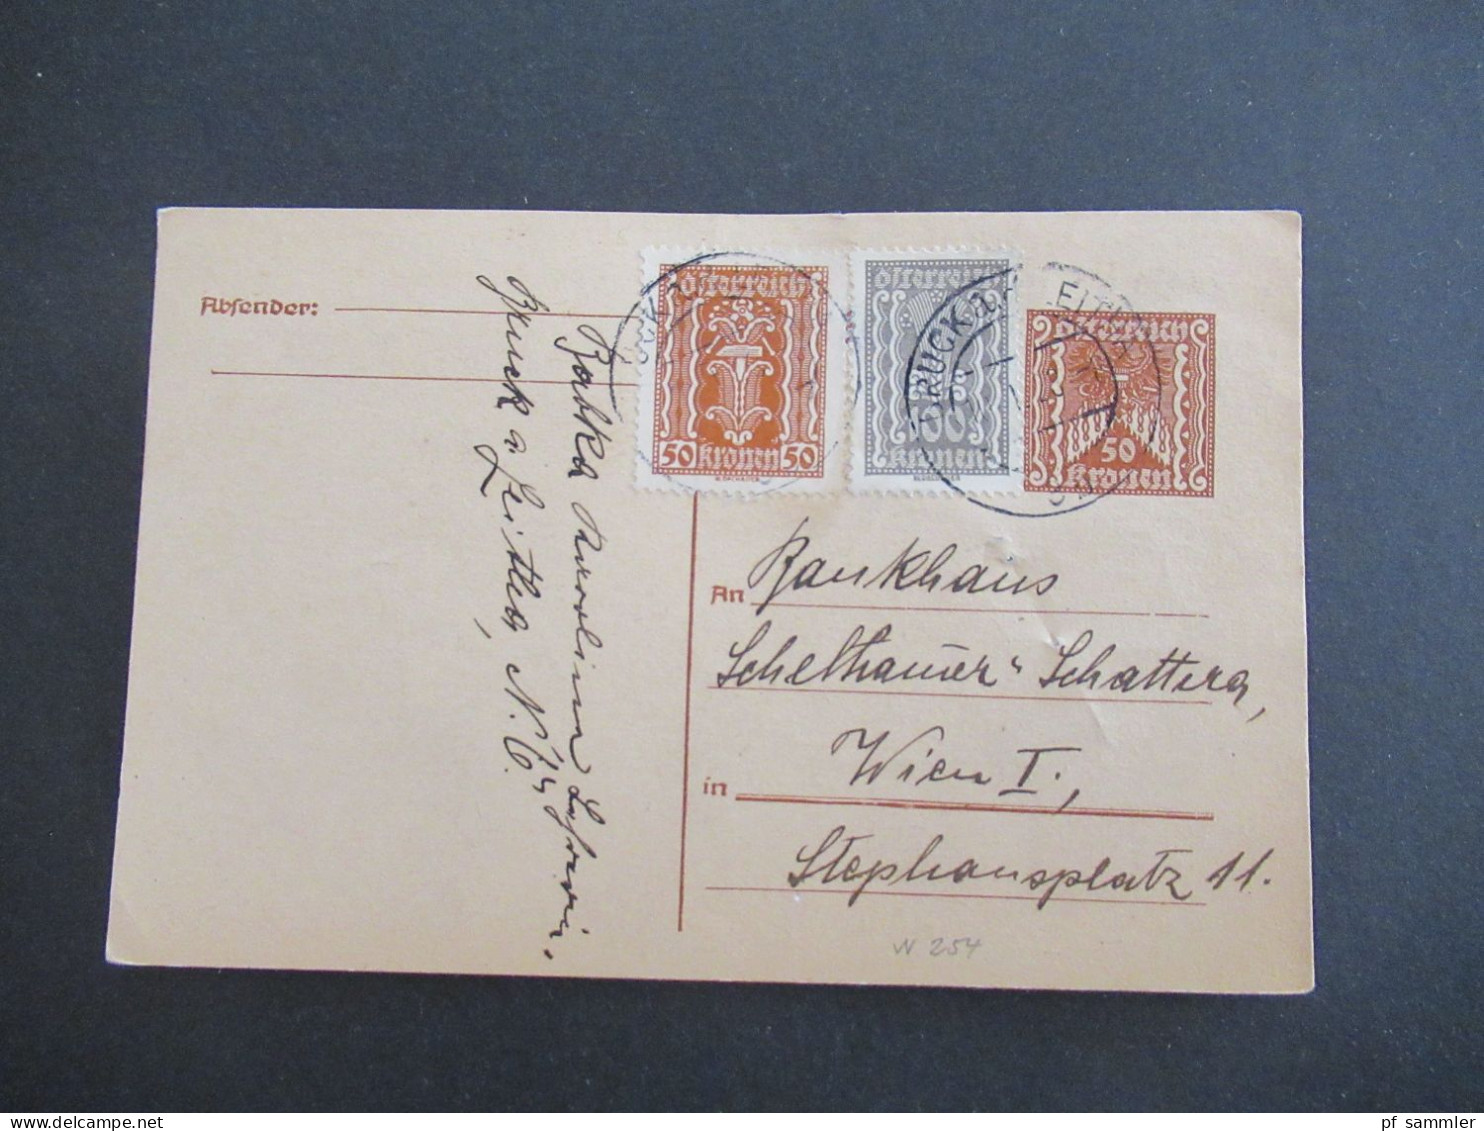 Absender:
Österreich
50 Kronen 50
Österreich
Kronen
Österreich
50
Kronen
BRUCK a.d. LEITHA
Bruck a. Leitha, N.Ö.
An Bankhaus
Schelhammer u. Schattera,
in Wien I.,
Stephansplatz 11.
W 254
pf sammler | Delcampe.net